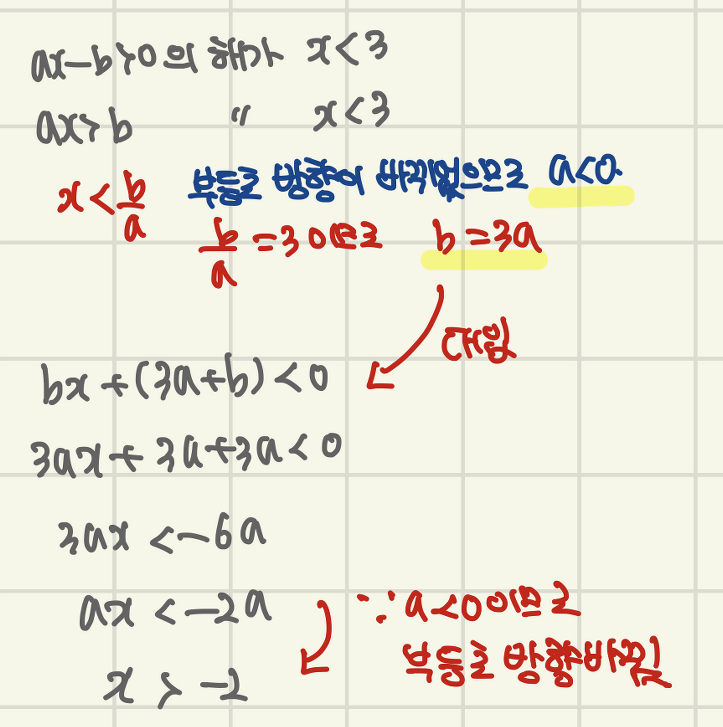 ax-b>0의 해가 x<3
ax>b 〃 x<3
x<b/a 부등호 방향이 바뀌었으므로 a<0
b/a=3이므로 b=3a
대입
bx+(3a+b)<0
3ax+3a+3a<0
3ax<-6a
ax<-2a ∵ a<0이므로
x>-2 부등호 방향바뀜